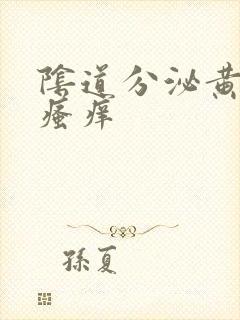 陰道分泌黃
瘙痒
孫夏